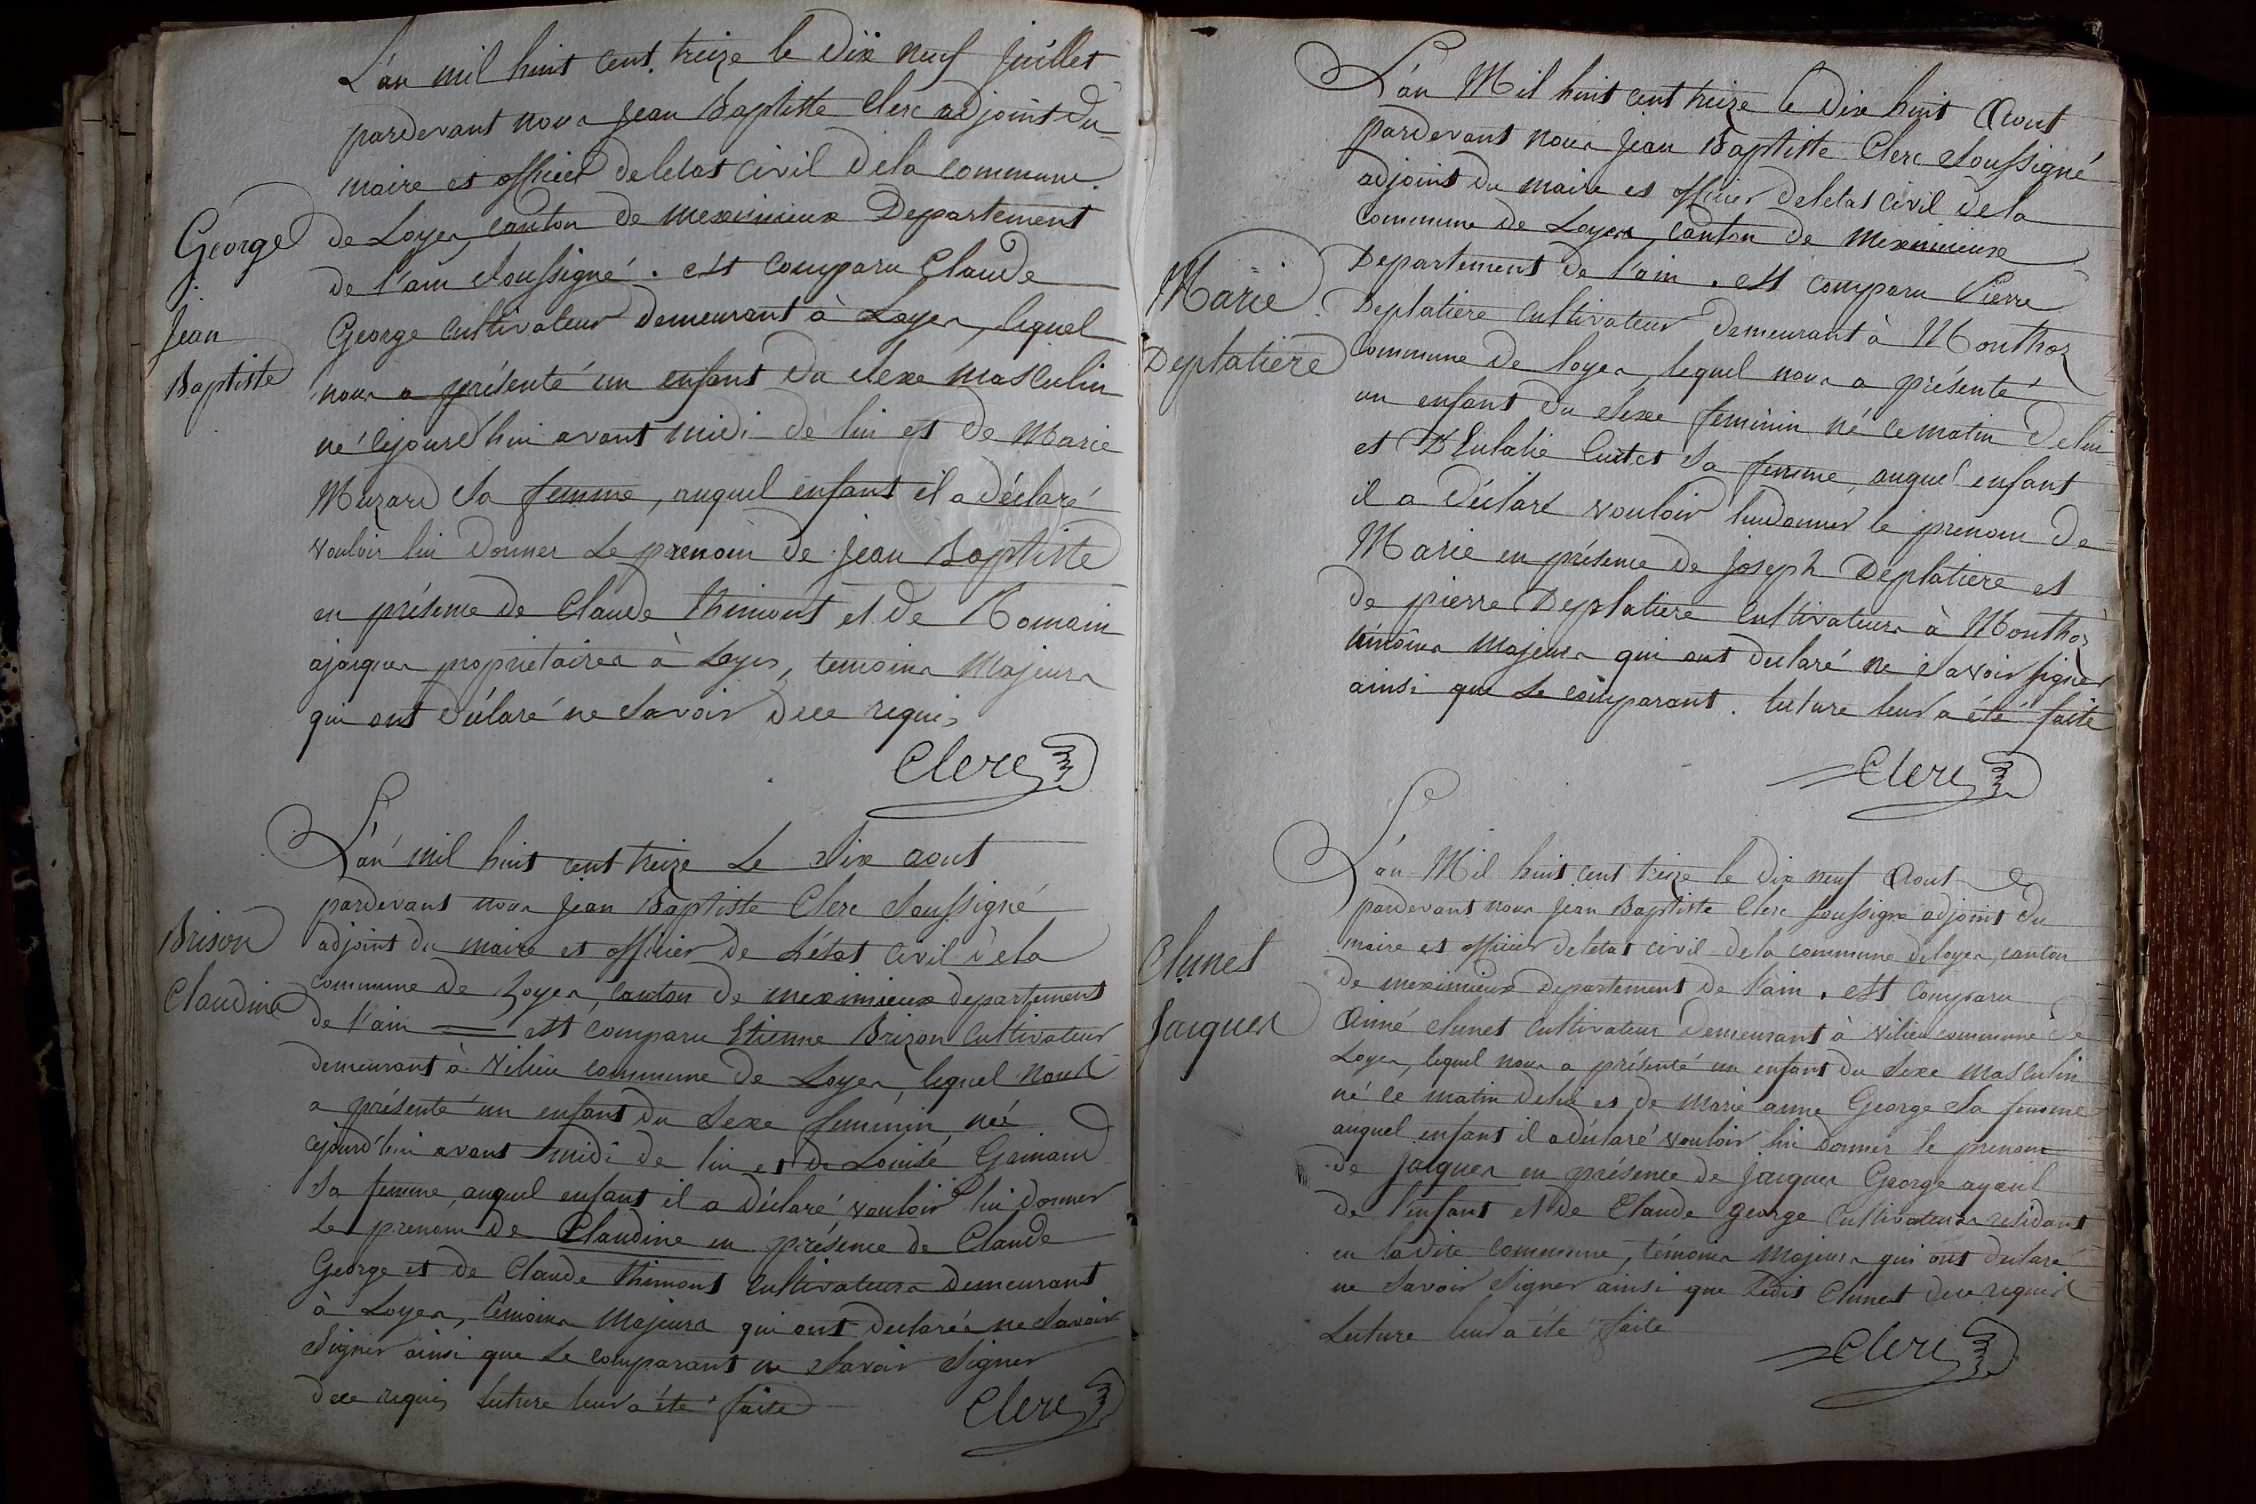 L'an mil huit cent treize le dix neuf juillet
pardevant nous jean Baptiste Clerc adjoint du
maire et officier de letat civil de la commune
de Loyes, canton de meximieux Departement
de l'ain soussigné. est comparu Claude
George cultivateur demeurant à Loyes, lequel
nous a présenté un enfant du sexe masculin
né cejourd'hui avant midi de lui et de Marie
Muzard sa femme, auquel enfant il a déclaré
vouloir lui donner le prenom de jean Baptiste
en présence de Claude thimont et de Romain
ajacques proprietaires à Loyes, temoins majeurs
qui ont déclaré ne savoir dece requis
Clerc
George
Jean
Baptiste
L'an mil huit cent treize le dix aout
pardevant nous jean Baptiste Clerc soussigné
adjoint du maire et officier de L'état civil dela
commune de Loyes, canton de meximieux departement
de l'ain est comparu Etienne Brizon cultivateur
demeurant à Vilieu commune de Loyes, lequel nous
a présenté un enfant du sexe feminin née
cejourd'hui avant midi de lui et de Louise
sa femme auquel enfant il a déclaré vouloir lui donner
le prenom de Claudine en présence de Claude
George et de Claude thimont cultivateurs demeurant
à Loyes, témoins majeurs qui ont declarés ne savoir
signer ainsi que le comparant ne savoir signer
dece requis lecture leur a été faite
Clerc
Brison
Claudine
L'an Mil huit cent treize le dix huit aout
pardevant nous jean Baptiste Clerc soussigné
adjoint du maire et officier deletat civil dela
commune de Loyes, canton de meximieux
Departement de l'ain. est comparu Pierre
Deplatière cultivateur demeurant à Monthoz
commune de loyes, lequel nous a présenté
un enfant du sexe feminin né cematin delui
et D'Eulalie sa femme, auquel enfant
il a déclaré vouloir luidonner le prenom de
Marie en présence de joseph Deplatiere et
de pierre Deplatiere cultivateurs à Monthoz
témoins majeurs qui ont declaré ne savoir signer
ainsi que le comparant. lecture leur a été faite
Clerc
Marie
Deplatiere
L'an Mil huit cent treize le dix neuf aout
pardevant nous jean Baptiste Clerc soussigné adjoint du
maire et officier deletat civil dela commune deloyes, canton
de meximieux departement de l'ain. est comparu
Aimé clunet cultivateur demeurant à vilieu commune de
Loyes, lequel nous a présenté un enfant du sexe masculin
né ce matin delui et de marie anne George sa femme
auquel enfant il a déclaré vouloir lui donner le prenom
de jacques en présence de jacques George ayeul
de l'enfant et de Claude george cultivateurs residant
en ladite commune, témoins majeurs qui ont declaré
ne savoir signer ainsi que ledit Clunet dece requis
Lecture leur a été faite
Clerc
Clunet
Jacques